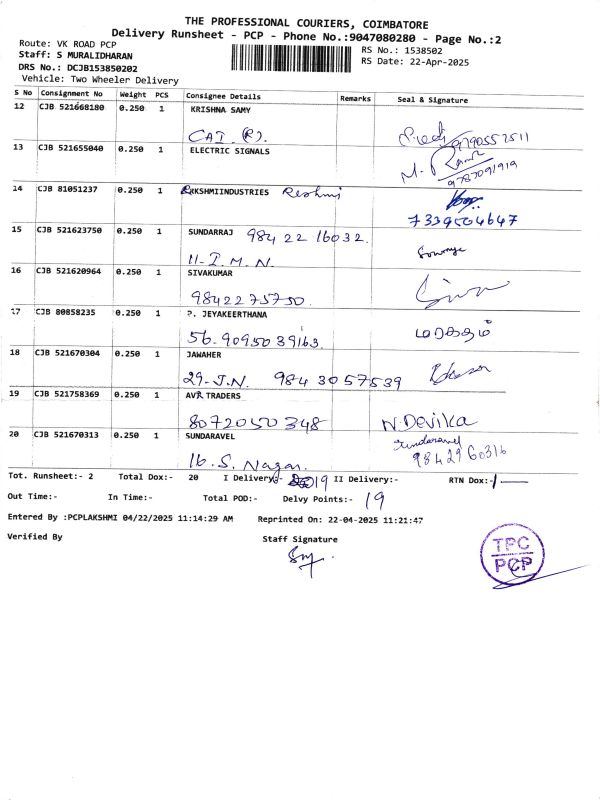 THE PROFESSIONAL COURIERS, COIMBATORE
Delivery Runsheet - PCP - Phone No.:9047080280 - Page No.:2
Route: VK ROAD PCP
RS No.: 1538502
Staff: S MURALIDHARAN
RS Date: 22-Apr-2025
DRS No.: DCJB153850202
Vehicle: Two Wheeler Delivery
S No Consignment No Weight PCS Consignee Details Remarks Seal & Signature
12 CJB 521668180 0.250 1 KRISHNA SAMY
9790557511
13 CJB 521655040 0.250 1 ELECTRIC SIGNALS
9787091919
14 CJB 81051237 0.250 1 RKSHMIINDUSTRIES Reshmi
7339504647
15 CJB 521623750 0.250 1 SUNDARRAJ 984 22 16032.
11-I.M.N. Sowmya
16 CJB 521620964 0.250 1 SIVAKUMAR
9842275750. Siva
17 CJB 80858235 0.250 1 P. JEYAKEERTHANA
56.9095039163. மரகதம்
18 CJB 521670304 0.250 1 JAWAHER
29-J.N. 9843057539
19 CJB 521758369 0.250 1 AVR TRADERS
8072050348 N.Devika
20 CJB 521670313 0.250 1 SUNDARAVEL Sundaravel
16.S. Nagar. 9842960316
Tot. Runsheet:- 2 Total Dox:- 20 I Delivery:- 19 II Delivery:- RTN Dox:- 1
Out Time:- In Time:- Total POD:- Delvy Points:- 19
Entered By :PCPLAKSHMI 04/22/2025 11:14:29 AM Reprinted On: 22-04-2025 11:21:47
Verified By Staff Signature
TPC
PCP